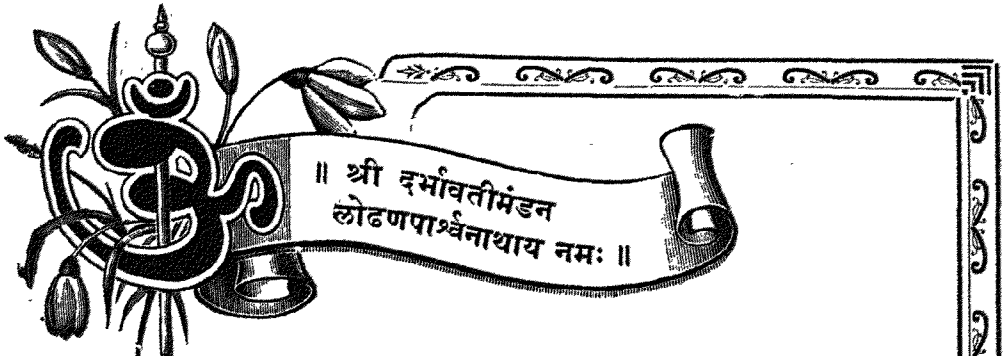 ॥ श्री दर्भावतीमंडन
लोढणपार्श्वनाथाय नमः ॥